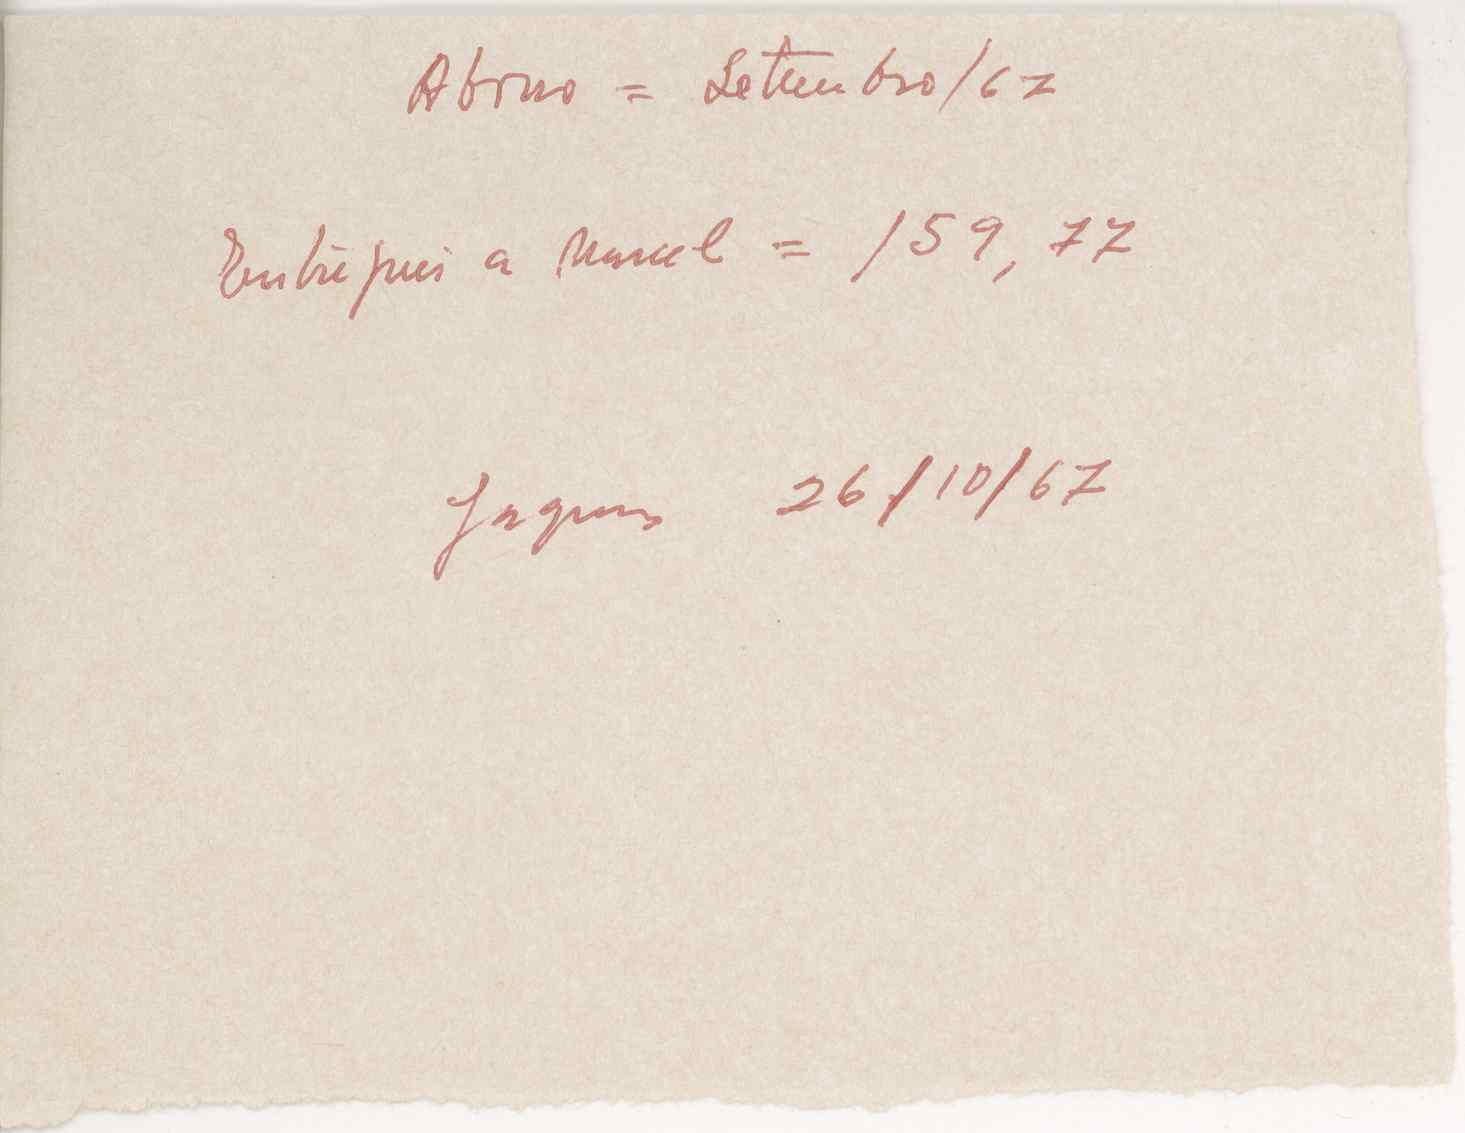 Abono = Setembro/67
Entreguei a Marcel = 159,77
Jaques 26/10/67